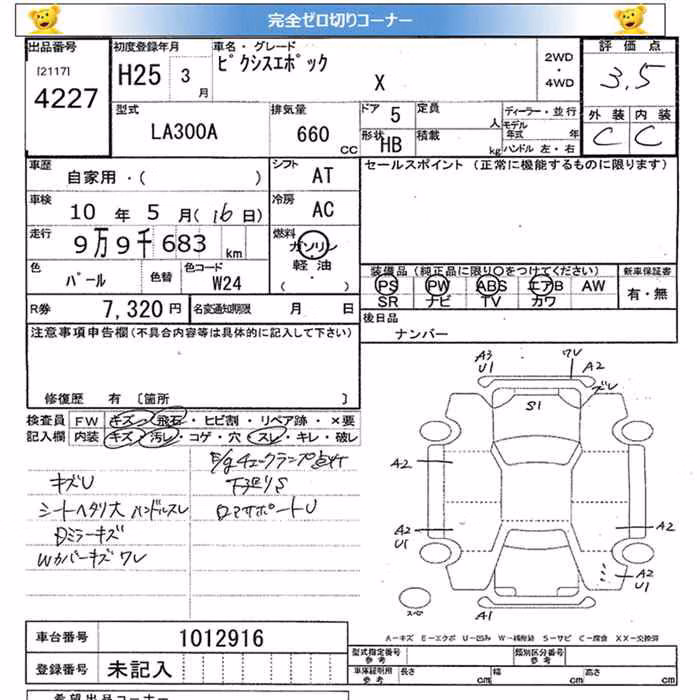 完全ゼロ切りコーナー
出品番号 初度登録年月 車名・グレード 評価点
[2117] 4227 H25 3月 ピクシスエポック X 2WD・4WD 3.5
外装 内装
C C
型式 排気量 ドア 定員 ディーラー・並行
LA300A 660 CC 5 人 モデル年式 年
形状 HB 積載 kg ハンドル 左・右
車歴 シフト セールスポイント (正常に機能するものに限ります)
自家用・( ) AT
車検 冷房
10年5月(16日) AC
走行 燃料
9万9千683 km ガソリン・軽油・( )
色 色替 色コード 装備品(純正品に限り○をつけてください) 新車保証書
パール W24 PS PW ABS エアB AW 有・無
SR ナビ TV カワ
R券 7,320円 名変通知期限 月 日 後日品
ナンバー
注意事項申告欄(不具合内容等は具体的に記入して下さい)
修復歴 有 [箇所 ]
検査員記入欄 FW キズ・飛石・ヒビ割・リペア跡・×要
内装 キズ・汚レ・コゲ・穴・スレ・キレ・破レ
E/gチェックランプ点灯
キズU 下廻りS
シートヘタリ大 ハンドルスレ ロアサポートU
Dミラーキズ
Wカバーキズ ワレ
A3 U1 ワレ A2
ズレ
S1
A2
A2 U1 A2
A2 U1
スペア A1
A-キズ E-エクボ U-凹み W-補修跡 S-サビ C-腐食 XX-交換済
車台番号 1012916
型式指定番号 参考 類別区分番号 参考
登録番号 未記入 車体証紙用 参考 長さ cm 幅 cm 高さ cm
希望出品コーナー